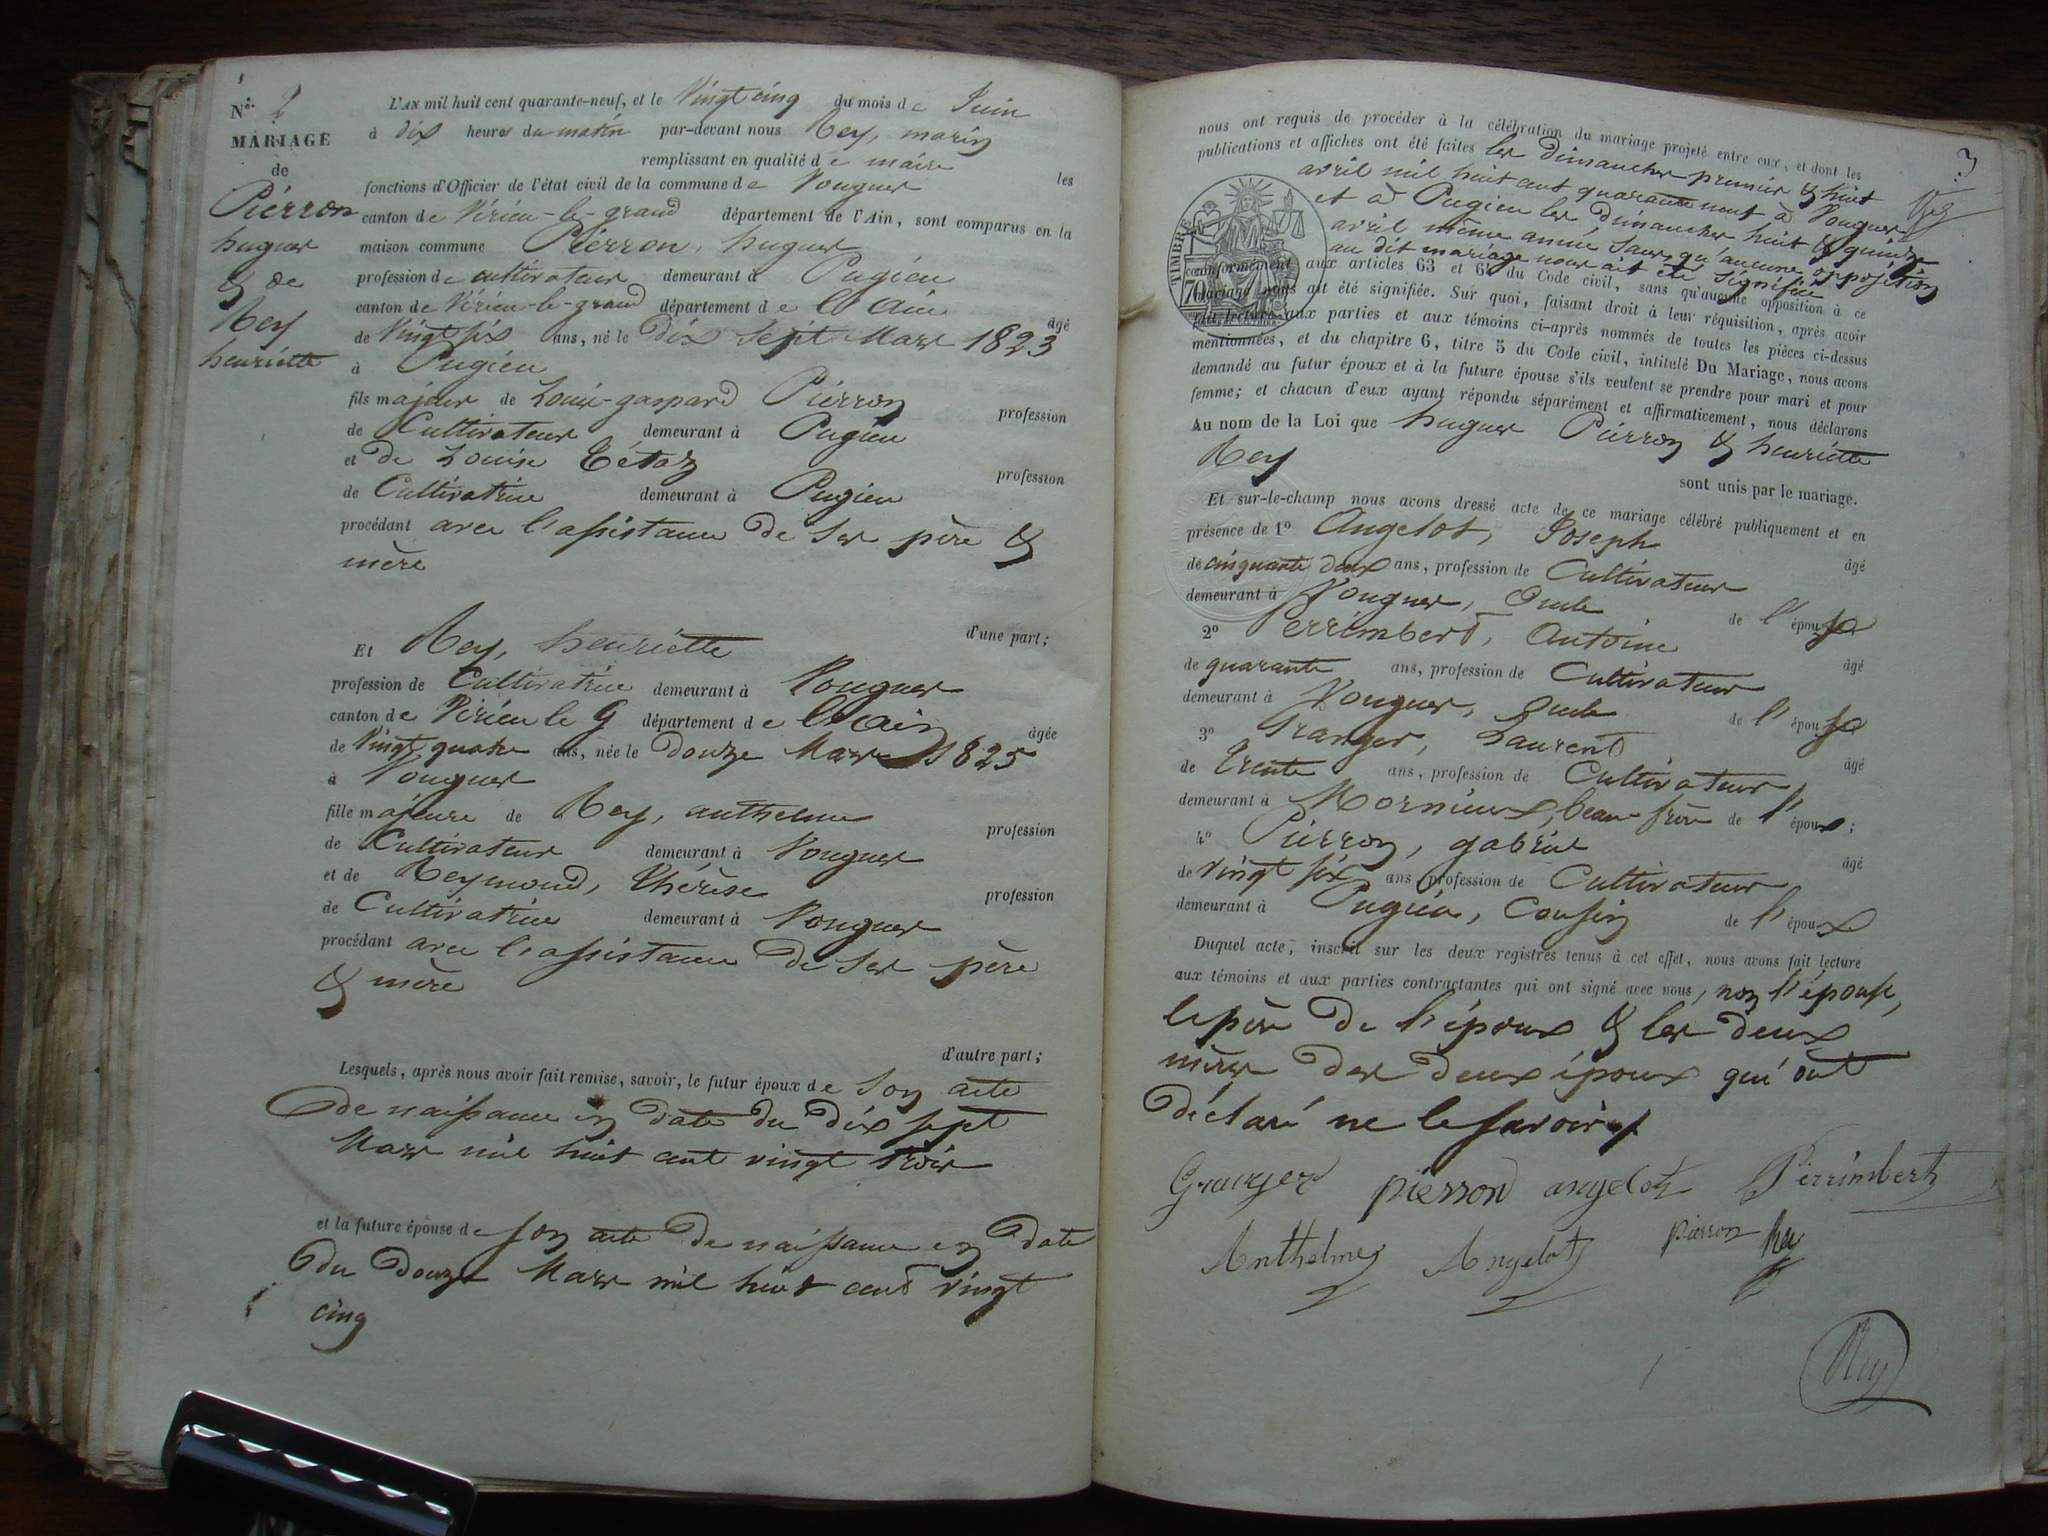 N.º 2
MARIAGE
de
Pierron
hugues
& de
Rey
henriette
L'AN mil huit cent quarante-neuf, et le Vingt cinq du mois de Juin
à dix heures du matin par-devant nous Rey, marin
remplissant en qualité de maire les
fonctions d'Officier de l'état civil de la commune de Vongnes
canton de Virieu-le-grand département de l'Ain, sont comparus en la
maison commune Pierron, hugues
profession de cultivateur demeurant à Pugieu
canton de Virieu-le-grand département de l'Ain
âgé
de Vingt six ans, né le Dix sept Mars 1823
à Pugieu
fils majeur de Louis-gaspard Pierron
profession
de Cultivateur demeurant à Pugieu
et de Louise Tétaz
profession
de Cultivatrice demeurant à Pugieu
procédant avec l'assistance de ses père &
mère
d'une part;
Et Rey, henriette
profession de Cultivatrice demeurant à Vongnes
canton de Virieu le G département de l'ain
âgée
de Vingt quatre ans, née le Douze Mars 1825
à Vongnes
fille majeure de Rey, anthelme
profession
de Cultivateur demeurant à Vongnes
et de Reymond, thérèse
profession
de Cultivatrice demeurant à Vongnes
procédant avec l'assistance de ses père
& mère
d'autre part;
Lesquels, après nous avoir fait remise, savoir, le futur époux de son acte
de naissance en date du dix sept
Mars mil huit cent vingt trois
et la future épouse de son acte de naissance en date
du douze Mars mil huit cent vingt
cinq
3
nous ont requis de procéder à la célébration du mariage projeté entre eux, et dont les
publications et affiches ont été faites les dimanches premier & huit
avril mil huit cent quarante neuf à Vongnes
et à Pugieu les dimanches huit & quinze
avril même année sans qu'aucune opposition
au dit mariage nous ait été signifiée
TIMBRE
70
conformément aux articles 63 et 64 du Code civil, sans qu'aucune opposition à ce
mariage nous ait été signifiée. Sur quoi, faisant droit à leur réquisition, après avoir
fait lecture aux parties et aux témoins ci-après nommés de toutes les pièces ci-dessus
mentionnées, et du chapitre 6, titre 5 du Code civil, intitulé Du Mariage, nous avons
demandé au futur époux et à la future épouse s'ils veulent se prendre pour mari et pour
femme; et chacun d'eux ayant répondu séparément et affirmativement, nous déclarons
Au nom de la Loi que hugues Pierron & henriette
Rey
sont unis par le mariage.
Et sur-le-champ nous avons dressé acte de ce mariage célébré publiquement et en
présence de 1º Angelot, Joseph
âgé
de cinquante deux ans, profession de Cultivateur
demeurant à Vongnes, Oncle de l'épouse
2º Perrimbert, Antoine
âgé
de quarante ans, profession de Cultivateur
demeurant à Vongnes, Oncle de l'épouse
3º Granger, Laurent
âgé
de Trente ans, profession de Cultivateur
demeurant à Mornieux, beau-frère de l'époux;
4º Pierron, gabriel
âgé
de Vingt six ans profession de Cultivateur
demeurant à Pugieu, Cousin de l'époux
Duquel acte, inscrit sur les deux registres tenus à cet effet, nous avons fait lecture
aux témoins et aux parties contractantes qui ont signé avec nous, non l'épouse,
le père de l'époux & les deux
mères des deux époux qui ont
déclaré ne le savoir
Granger pierron angelot Perrimbert
Anthelme Angelot pierron Rey
Rey